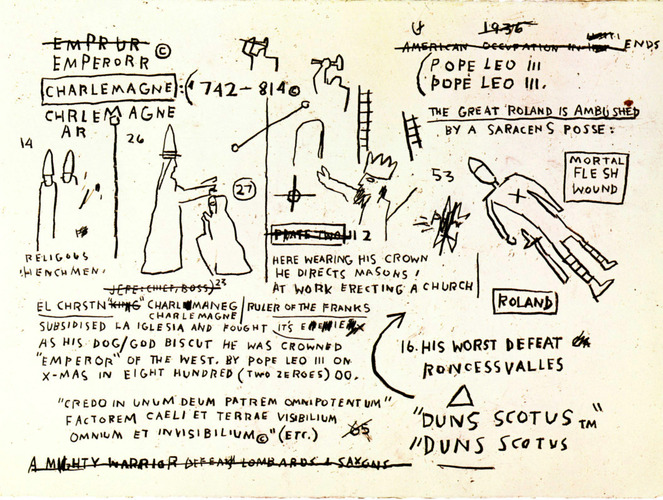 EMPRUR ©
EMPERORR
CHARLEMAGNE :(742-814©
CHRLEMAGNE
AR
14
26
27
RELIGOUS
HENCHMEN.
1936
AMERICAN OCCUPATION IN ENDS
POPE LEO III
POPE LEO III.
THE GREAT ROLAND IS AMBUSHED
BY A SARACENS POSSE:
53
MORTAL
FLESH
WOUND
PLATE TWO II 2
HERE WEARING HIS CROWN
HE DIRECTS MASONS!
AT WORK ERECTING A CHURCH
ROLAND
JEFE: CHEF, BOSS) 23
EL CHRSTN "KING" CHARLMANEG
CHARLEMAGNE
RULER OF THE FRANKS
SUBSIDISED LA IGLESIA AND FOUGHT IT'S
AS HIS DOG/GOD BISCUT HE WAS CROWNED
"EMPEROR" OF THE WEST. BY POPE LEO III ON
X-MAS IN EIGHT HUNDRED (TWO ZEROES) 00.
"CREDO IN UNUM DEUM PATREM OMNIPOTENTUM"
FACTOREM CAELI ET TERRAE VISIBILIUM
OMNIUM ET INVISIBILIUM©" (ETC.)
A MIGHTY WARRIOR DEFEAT LOMBARDS & SAXONS
16. HIS WORST DEFEAT
RONCESSVALLES
"DUNS SCOTUS TM"
"DUNS SCOTUS